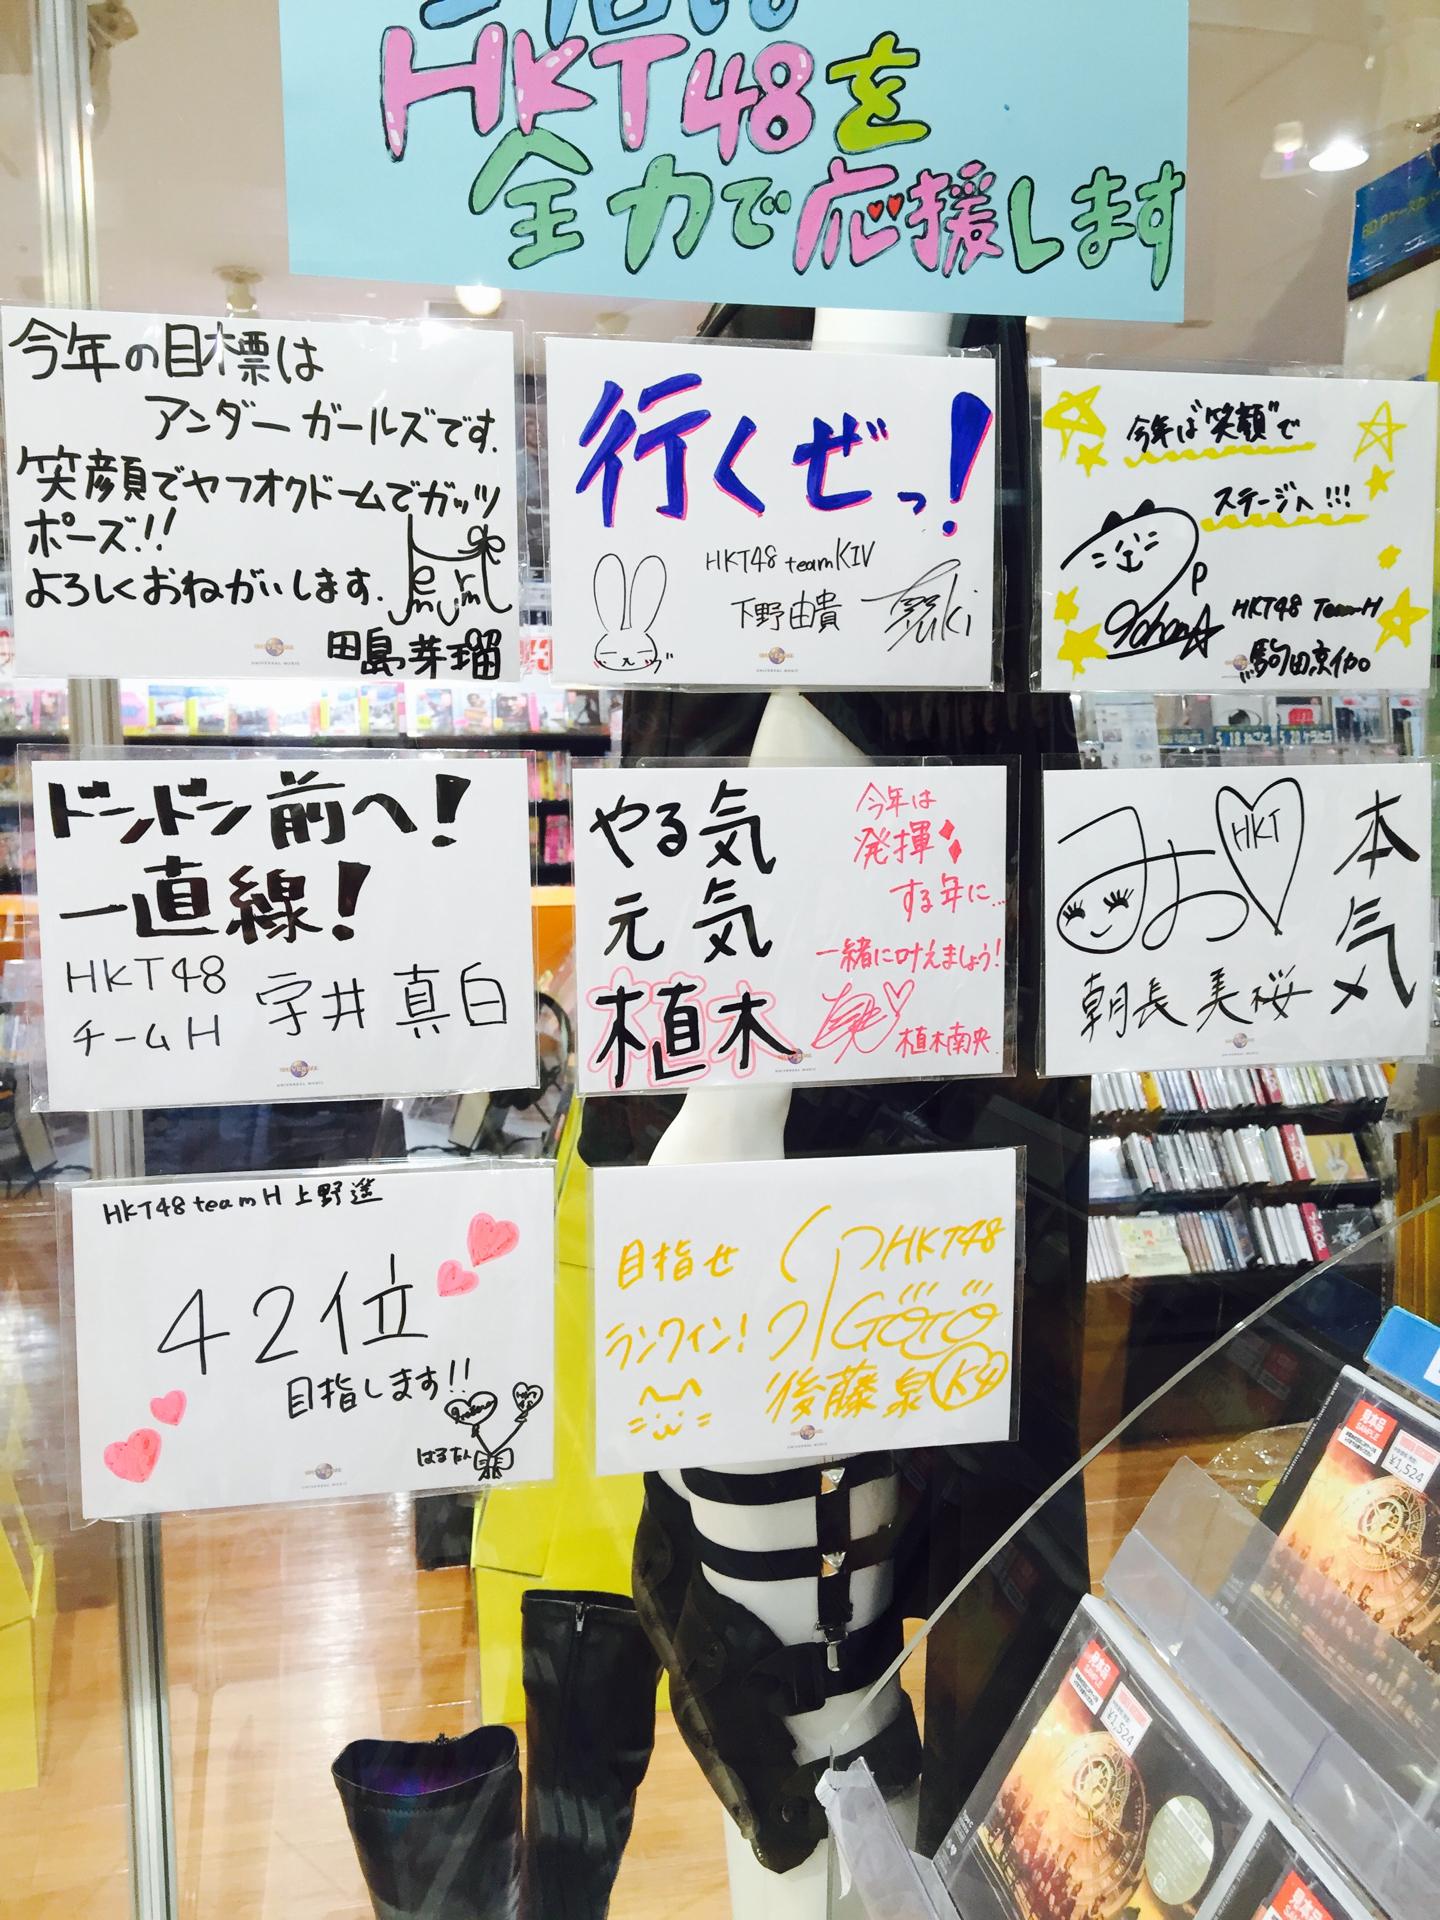 HKT48を
全力で応援します
今年の目標は
アンダーガールズです。
笑顔でヤフオクドームでガッツ
ポーズ!!
よろしくおねがいします。
田島芽瑠
UNIVERSAL MUSIC
行くぜっ!
HKT48 teamKIV
下野由貴
UNIVERSAL MUSIC
今年は"笑顔"で
ステージへ!!!
HKT48 Team-H
駒田京伽
ドンドン前へ!
一直線!
HKT48
チームH 宇井真白
UNIVERSAL MUSIC
やる気
元気
植木
今年は
発揮
する年に...
一緒に叶えましょう!
植木南央
UNIVERSAL MUSIC
みお
HKT
本気
朝長美桜
UNIVERSAL MUSIC
HKT48 team H 上野遥
42位
目指します!!
はるたん
UNIVERSAL MUSIC
目指せ
ランクイン!
HKT48
GOTO
後藤泉 K4
UNIVERSAL MUSIC
見本品
SAMPLE
¥1,524
見本品
SAMPLE
¥1,524
見本品